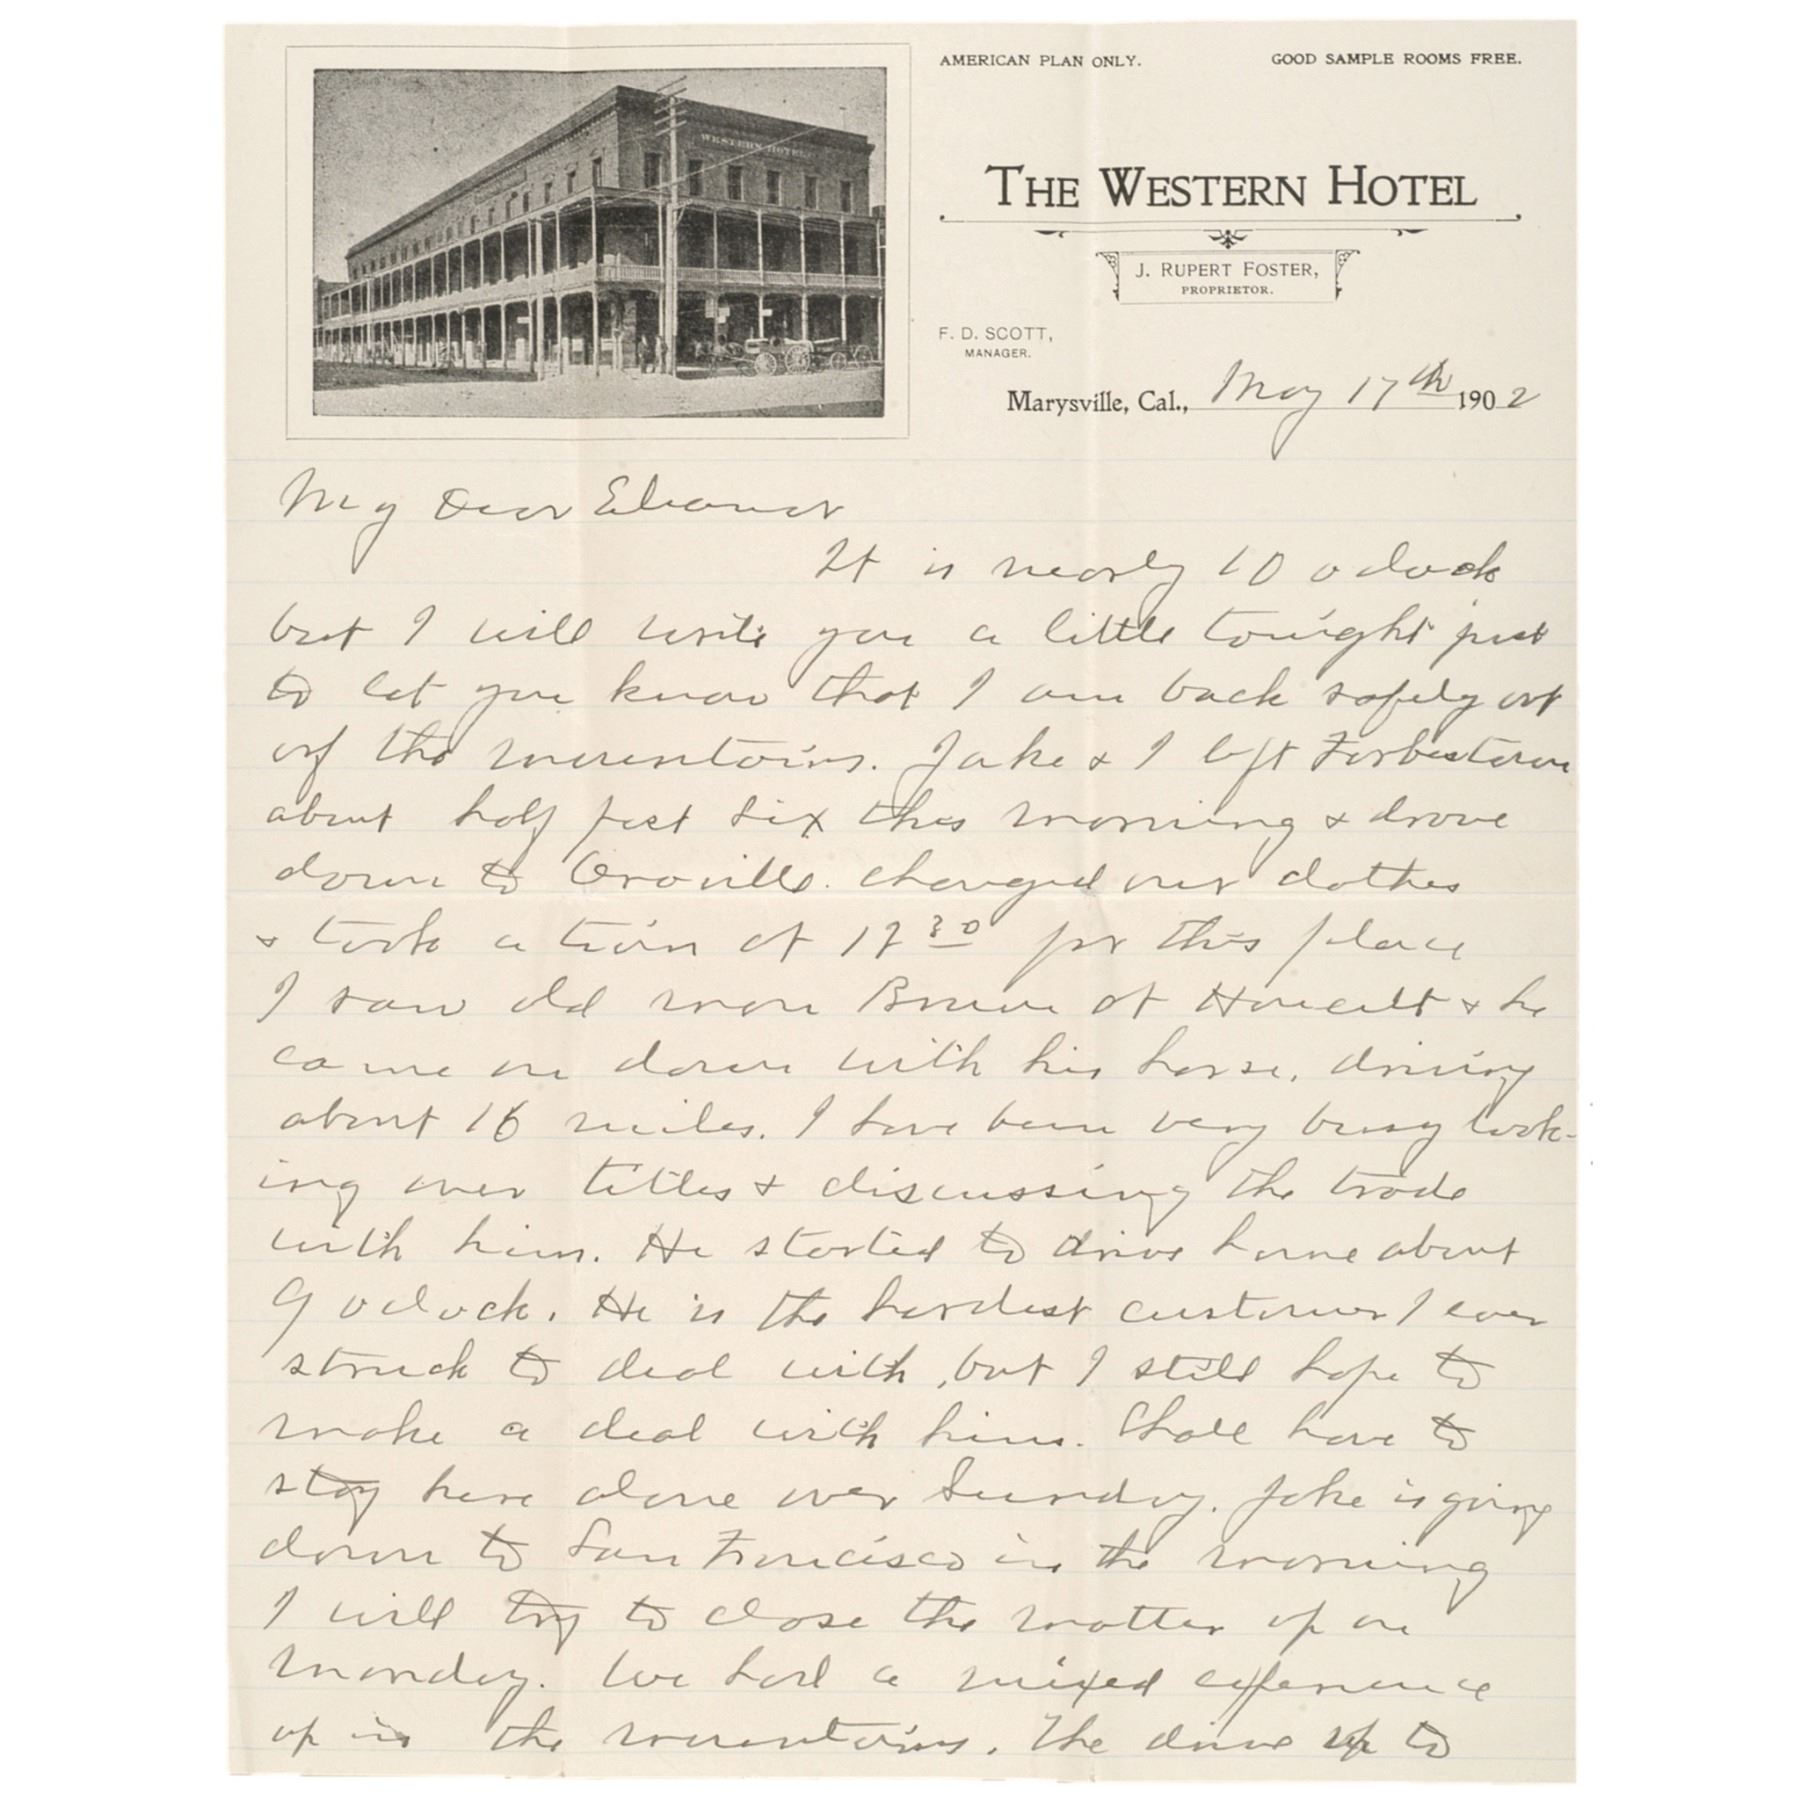 WESTERN HOTEL
AMERICAN PLAN ONLY. GOOD SAMPLE ROOMS FREE.
THE WESTERN HOTEL
J. RUPERT FOSTER,
PROPRIETOR.
F. D. SCOTT,
MANAGER.
Marysville, Cal., May 17th 1902
My Dear Eleanor
It is nearly 10 oclock
but I will write you a little tonight just
to let you know that I am back safely out
of the mountains. Jake & I left Forbestown
about half past six this morning & drove
down to Oroville. changed our clothes
& took a train at 1730 for this place
I saw old man Brown at Honcutt & he
came on down with his horse, driving
about 16 miles. I have been very busy look-
ing over titles & discussing the trade
with him. He started to drive home about
9 oclock. He is the hardest customer I ever
struck to deal with, but I still hope to
make a deal with him. Shall have to
stay here alone over Sunday. Jake is going
down to San Francisco in the morning
I will try to close the matter up on
Monday. We had a mixed experience
up in the mountains. The drive up to